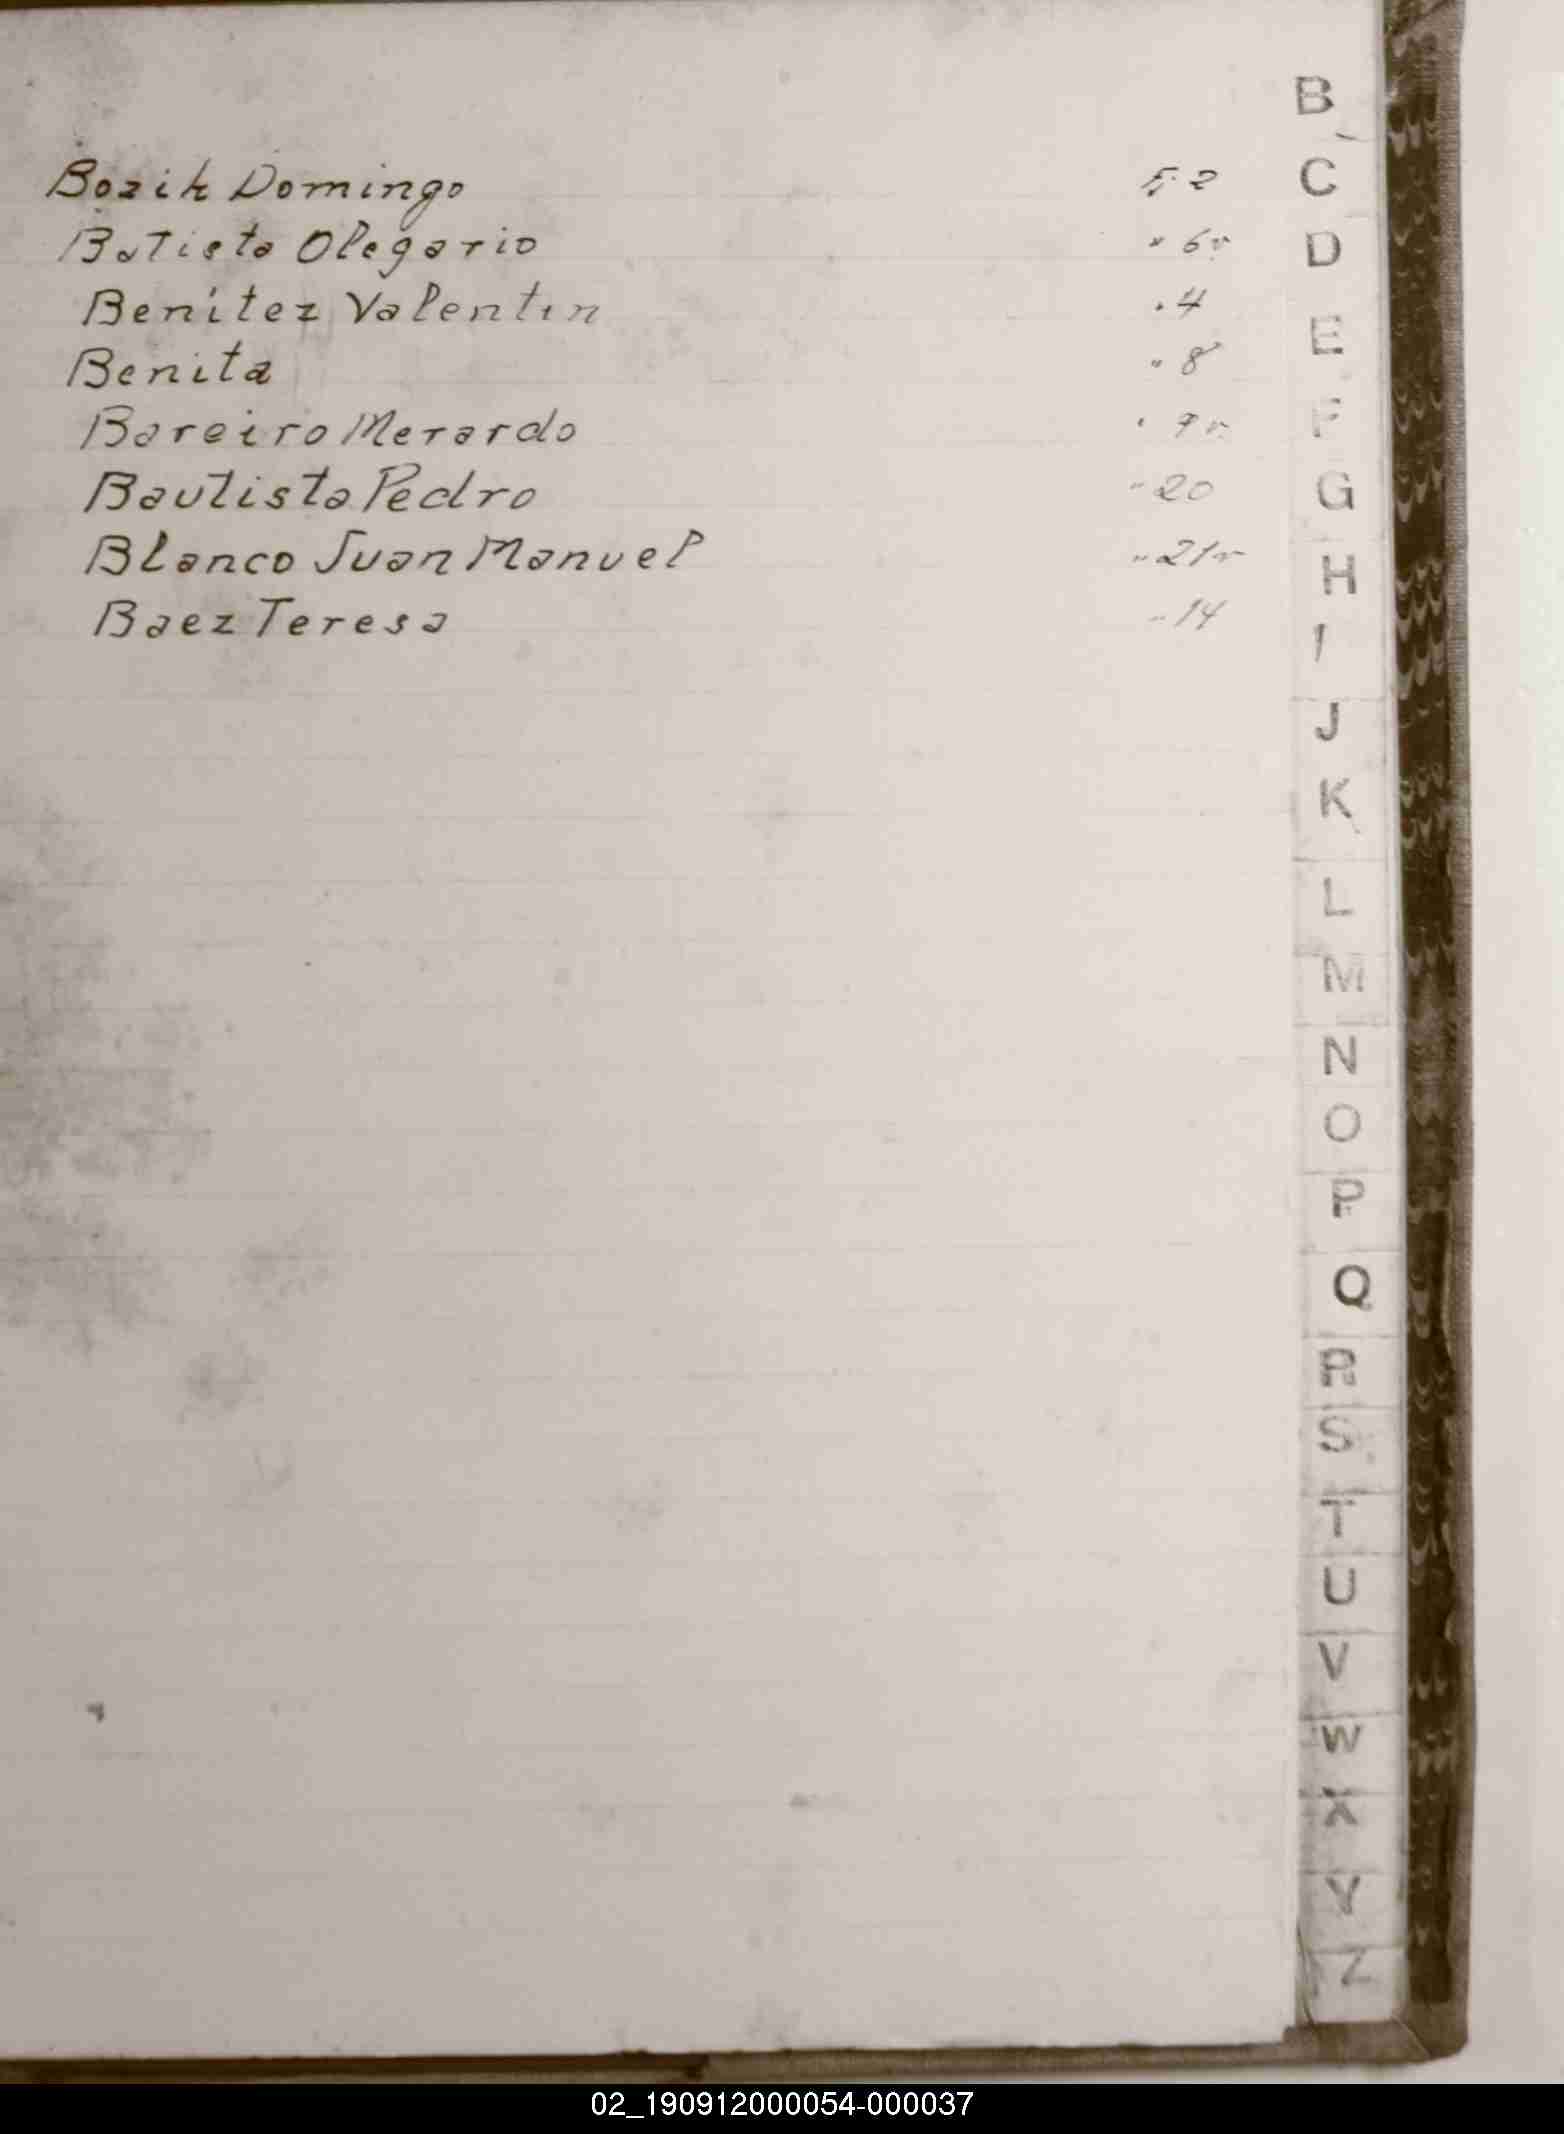 B
Bozik Domingo F. 2
C
Batista Olegario " 6v
D
Benítez Valentin " 4
E
Benita " 8
F
Bareiro Merardo " 9v
Bautista Pedro " 20
G
Blanco Juan Manuel " 21v
H
Baez Teresa " 14
I
J
K
L
M
N
O
P
Q
R
S
T
U
V
W
X
Y
Z
02_190912000054-000037